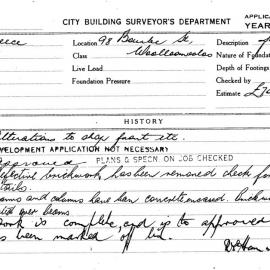 CITY BUILDING SURVEYOR'S DEPARTMENT
APPLIC
YEAR
Location 98 Bourke St,
Woolloomooloo
Description
Class
Nature of Foundat
Live Load
Depth of Footings
Foundation Pressure
Checked by
Estimate
HISTORY
Alterations to shop front etc.
DEVELOPMENT APPLICATION NOT NECESSARY
Approved PLANS & SPECN. ON JOB CHECKED
Defective brickwork has been removed check for
tails.
and columns have been concrete encased. Brickwo
over beams.
Work is complete, and is to approved
been marked off